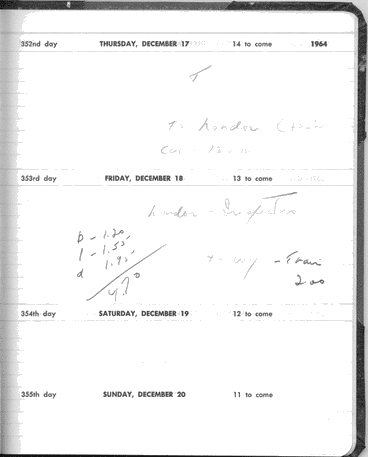 352nd day THURSDAY, DECEMBER 17 14 to come 1964
T
to London (train
353rd day FRIDAY, DECEMBER 18 13 to come
London - Inspection
b - 1.20
l - 1.55
d 1.95
4.70
to - Train
2.00
354th day SATURDAY, DECEMBER 19 12 to come
355th day SUNDAY, DECEMBER 20 11 to come